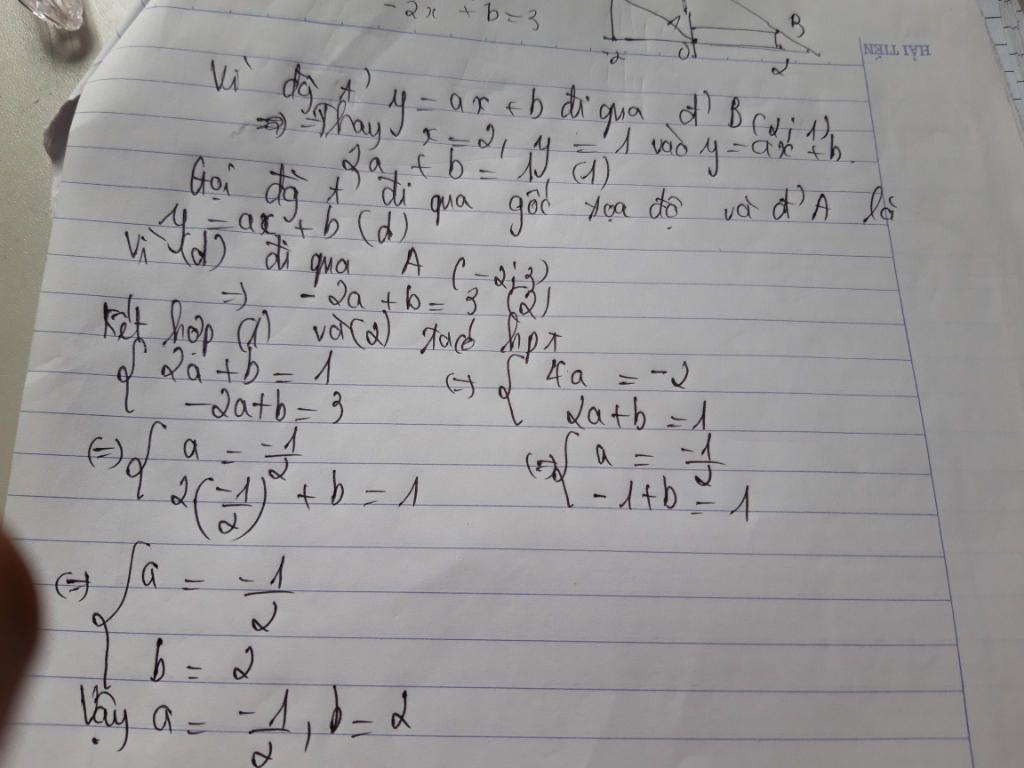 -2x + b = 3
A B
-2 0 2
HẢI TIẾN
Vì đg t' y = ax + b đi qua đ' B (2; 1)
=> Thay x = 2, y = 1 vào y = ax + b.
2a + b = 1 (1)
Gọi đg t' đi qua gốc tọa độ và đ' A là
y = ax + b (d)
Vì (d) đi qua A (-2; 3)
=> -2a + b = 3 (2)
Kết hợp (1) và (2) ta có hpt
{ 2a + b = 1 (=) { 4a = -2
-2a + b = 3 2a + b = 1
(=) { a = -1/2 (=) { a = -1/2
2(-1/2) + b = 1 -1 + b = 1
(=) { a = -1/2
b = 2
Vậy a = -1/2, b = 2